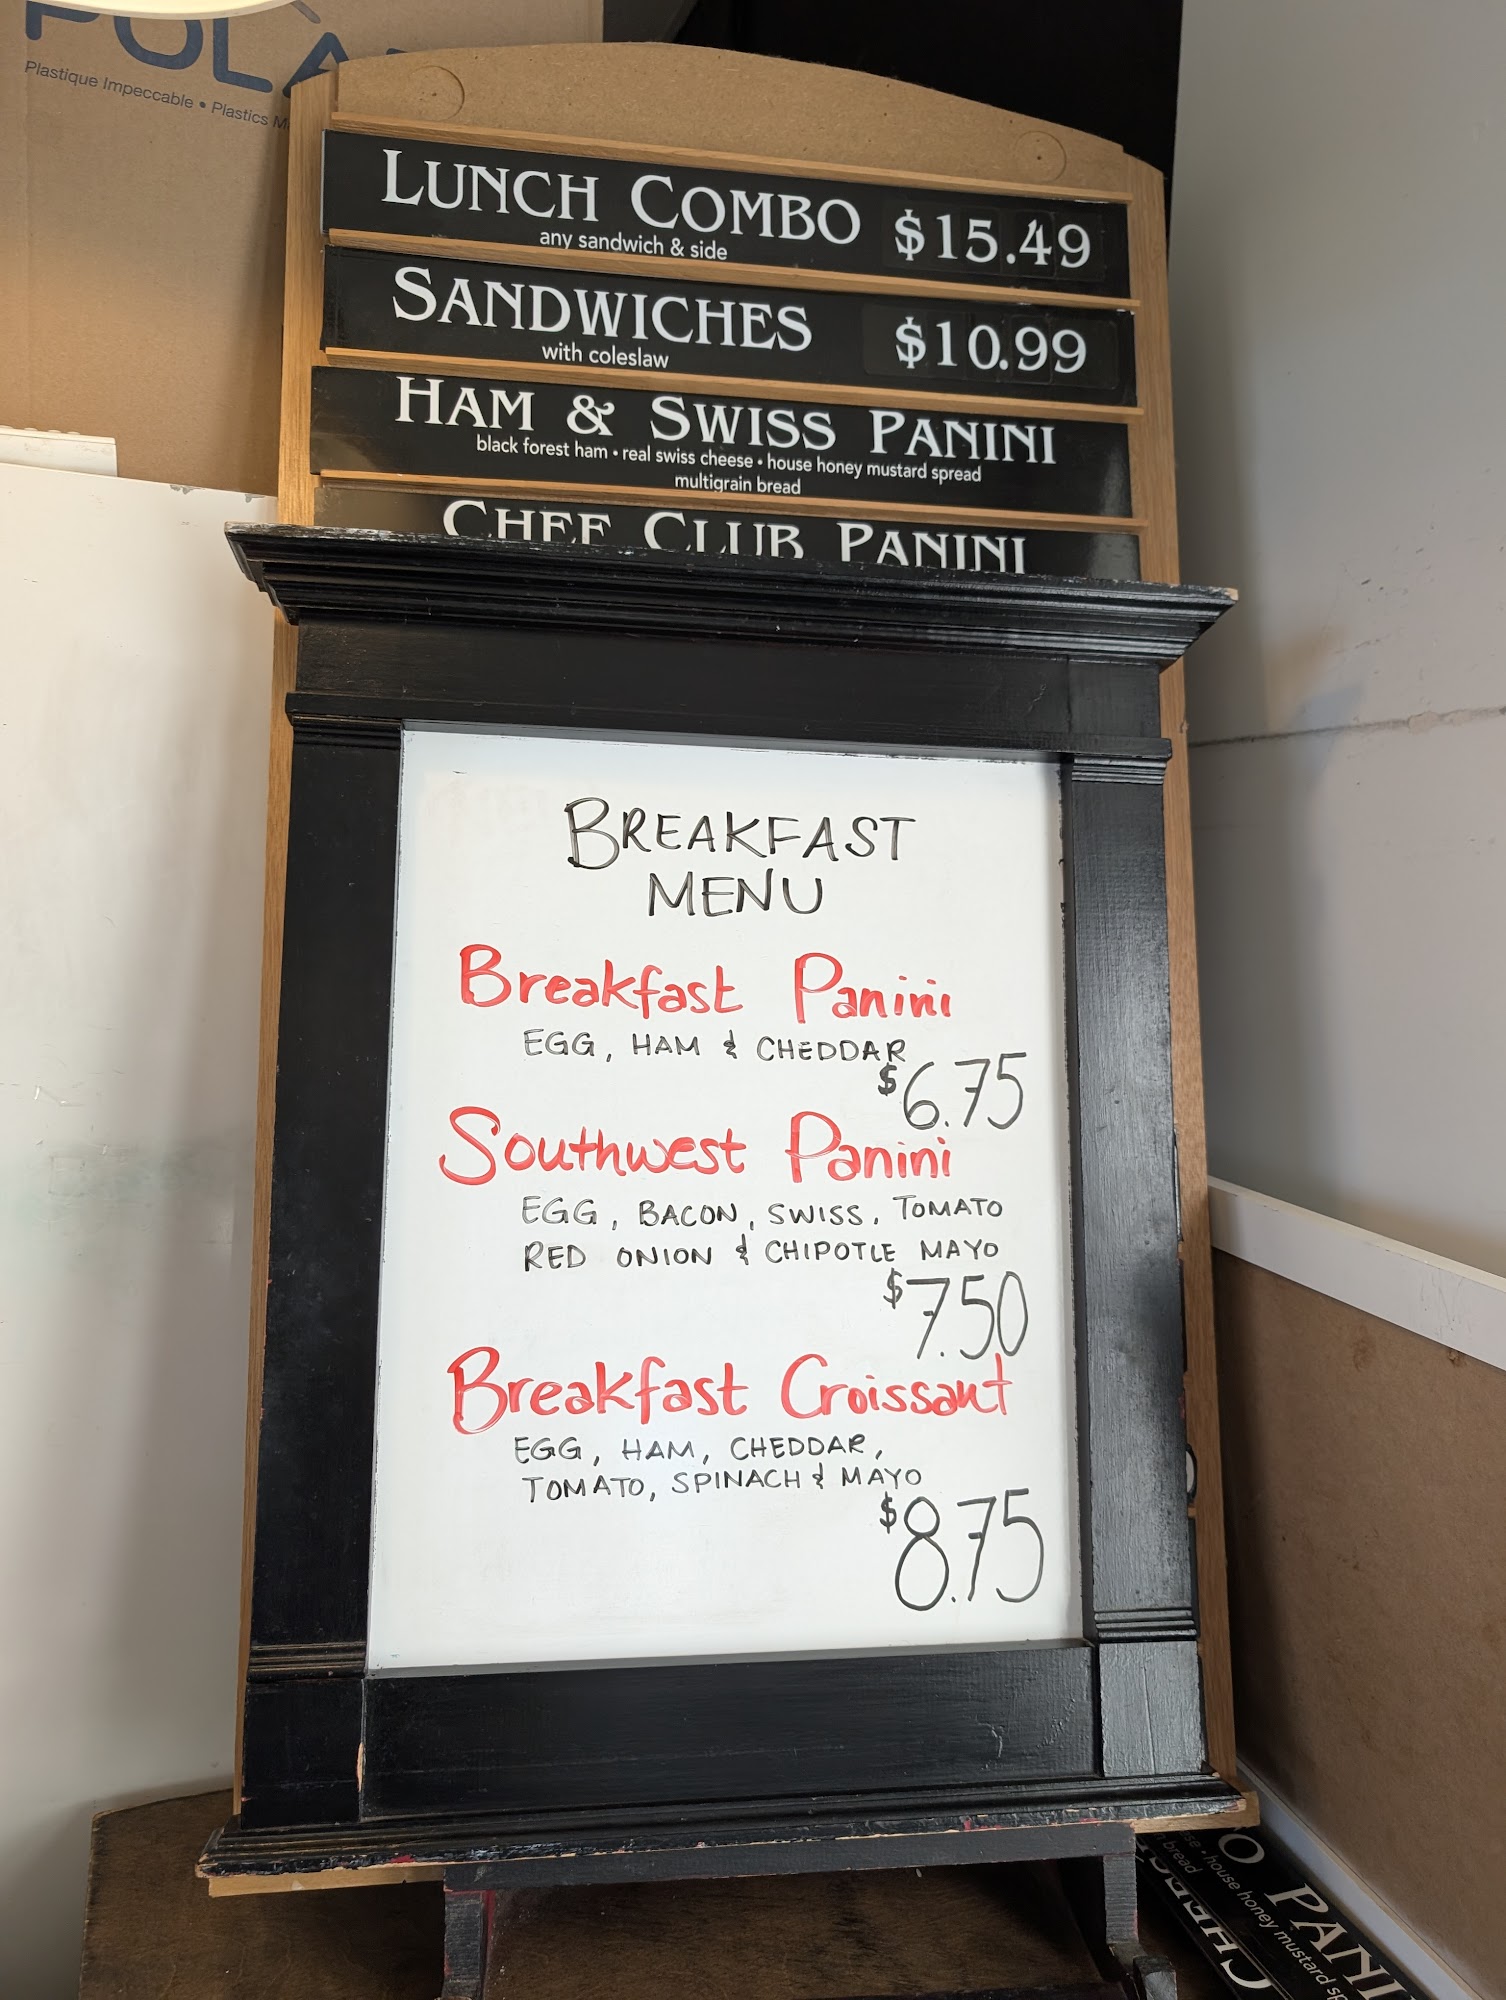 Plastique Impeccable • Plastics
LUNCH COMBO $15.49
any sandwich & side
SANDWICHES $10.99
with coleslaw
HAM & SWISS PANINI
black forest ham • real swiss cheese • house honey mustard spread
multigrain bread
CHEF CLUB PANINI
BREAKFAST
MENU
Breakfast Panini
EGG, HAM & CHEDDAR
$6.75
Southwest Panini
EGG, BACON, SWISS, TOMATO
RED ONION & CHIPOTLE MAYO
$7.50
Breakfast Croissant
EGG, HAM, CHEDDAR,
TOMATO, SPINACH & MAYO
$8.75
house honey mustard
bread